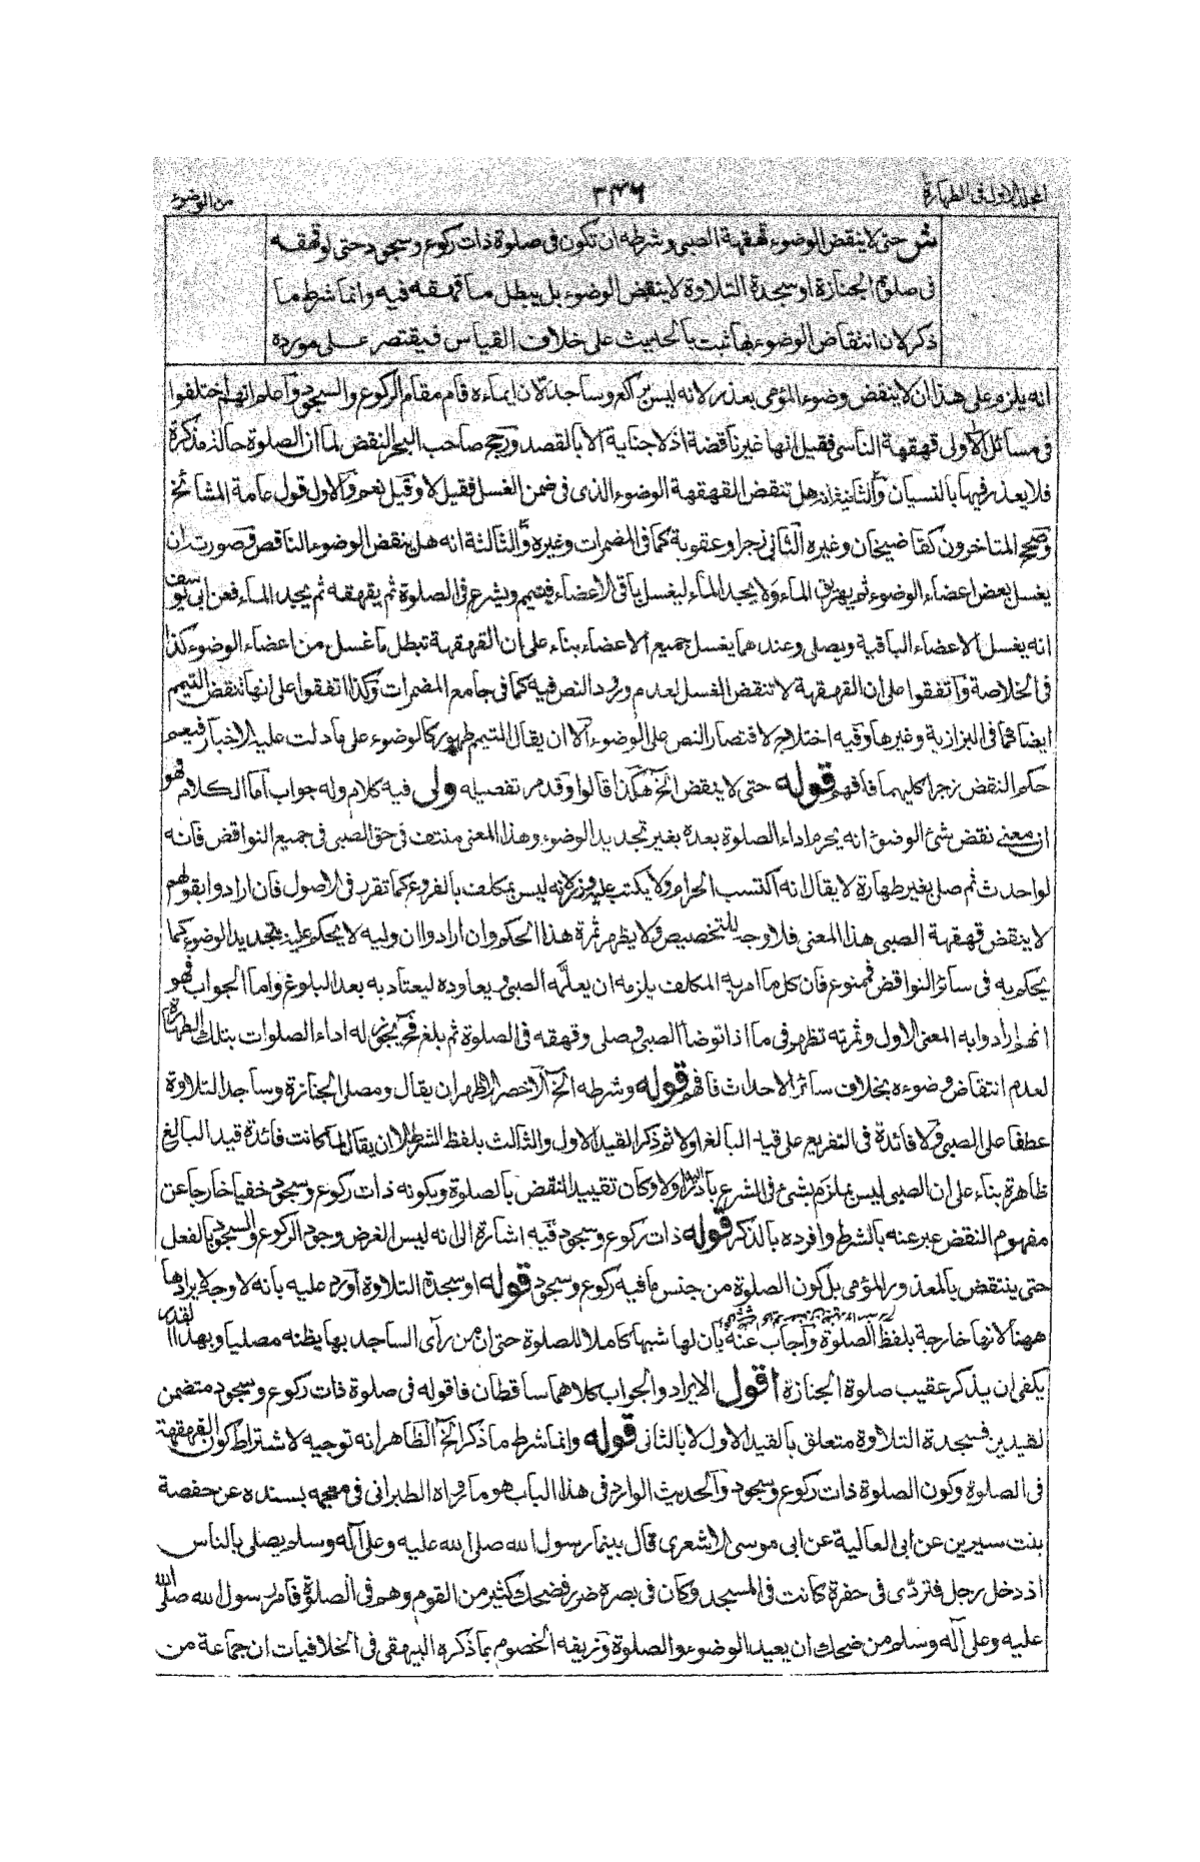 المجلد الاول فى الطهارة
٣٤٦
من الوضوء
ش حتى لا ينقض الوضوء قهقهة الصبى وشرطه ان تكون فى صلوة ذات ركوع وسجود حتى لو قهقه
فى صلوة الجنازة او سجدة التلاوة لا ينقض الوضوء بل يبطل ما قهقه فيه وانما شرط ما
ذكر لان انتقاض الوضوء بها ثبت بالحديث على خلاف القياس فيقتصر على مورده
انه يلزم على هذا ان لا ينقض وضوء المؤمى بعذر لانه ليس براكع وساجد لان ايماءه قام مقام الركوع والسجود واعلم انهم اختلفوا
فى مسائل الاولى قهقهة الناسى فقيل انها غير ناقضة اذ لا جناية الا بالقصد ورجح صاحب البحر النقض لما ان الصلوة حالة مذكرة
فلا يعذر فيها بالنسيان والثانية انه هل تنقض القهقهة الوضوء الذى فى ضمن الغسل فقيل لا وقيل نعم والاول قول عامة المشائخ
وصحح المتاخرون كقاضيخان وغيره الثانى زجرا وعقوبة كما فى المضمرات وغيره والثالثة انه هل ينقض الوضوء الناقص وصورته ان
يغسل بعض اعضاء الوضوء ثم يهريق الماء ولا يجد الماء ليغسل باقى الاعضاء فيتيمم ويشرع فى الصلوة ثم يقهقه ثم يجد الماء فعن ابى يوسف
انه يغسل الاعضاء الباقية ويصلى وعندهما يغسل جميع الاعضاء بناء على ان القهقهة تبطل ما غسل من اعضاء الوضوء كذا
فى الخلاصة واتفقوا على ان القهقهة لا تنقض الغسل لعدم ورود النص فيه كما فى جامع المضمرات وكذا اتفقوا على انها تنقض التيمم
ايضا كما فى البزازية وغيرها وفيه اختلاج لاقتصار النص على الوضوء الا ان يقال التيمم طهور كالوضوء على ما دلت عليه الاخبار فيعم
حكم النقض زجرا كليهما فافهم قوله حتى لا ينقض الخ هكذا قالوا وقد مر تفصيله ولى فيه كلام وله جواب اما الكلام فهو
ان معنى نقض شئ الوضوء انه يحرم اداء الصلوة بعده بغير تجديد الوضوء وهذا المعنى منتف فى حق الصبى فى جميع النواقض فانه
لو احدث ثم صلى بغير طهارة لا يقال انه اكتسب الحرام ولا يكتب عليه وزر لانه ليس بمكلف بالفروع كما تقرر فى الاصول فان ارادوا بقولهم
لا ينقض قهقهة الصبى هذا المعنى فلا وجه للتخصيص ولا يظهر ثمرة هذا الحكم وان ارادوا ان وليه لا يحكم عليه بتجديد الوضوء كما
يحكم به فى سائر النواقض فممنوع فان كل ما امر به المكلف يلزمه ان يعلّمه الصبى ويعاوده ليعتاد به بعد البلوغ واما الجواب فهو
انهم ارادوا به المعنى الاول وثمرته تظهر فى ما اذا توضأ الصبى وصلى وقهقه فى الصلوة ثم بلغ فح يجوز له اداء الصلوات بتلك الطهارة
لعدم انتقاض وضوءه بخلاف سائر الاحداث فافهم قوله وشرطه الخ الاخصر الاظهر ان يقال ومصلى الجنازة وساجد التلاوة
عطفا على الصبى ولا فائدة فى التفريع على قيد البالغ اولا ثم ذكر القيد الاول والثالث بلفظ الشرط الا ان يقال لما كانت فائدة قيد البالغ
ظاهرة بناء على ان الصبى ليس بملزم بشئ فى الشرع باداه اولا وكان تقييد النقض بالصلوة وبكونه ذات ركوع وسجود خفيا خارجا عن
مفهوم النقض عبر عنه بالشرط وافرده بالذكر قوله ذات ركوع وسجود فيه اشارة الى انه ليس الغرض وجود الركوع والسجود بالفعل
حتى ينتقض بالمعذور المؤمى بل كون الصلوة من جنس ما فيه ركوع وسجود قوله او سجدة التلاوة اورد عليه بانه لا وجه لايرادها
ههنا لانها خارجة بلفظ الصلوة واجاب عنه بان لها شبها كاملا للصلوة حتى ان من رآى الساجد بها يظنه مصليا وبهذا القدر
يكفى ان يذكر عقيب صلوة الجنازة اقول الايراد والجواب كلاهما ساقطان فان قوله فى صلوة ذات ركوع وسجود متضمن
لقيدين فسجدة التلاوة متعلق بالقيد الاول لا بالثانى قوله وانما شرط ما ذكر الخ الظاهر انه توجيه لاشتراط كون القهقهة
فى الصلوة وكون الصلوة ذات ركوع وسجود والحديث الوارد فى هذا الباب هو ما رواه الطبرانى فى معجمه بسنده عن حفصة
بنت سيرين عن ابى العالية عن ابى موسى الاشعرى قال بينما رسول الله صلى الله عليه وعلى آله وسلم يصلى بالناس
اذ دخل رجل فتردّى فى حفرة كانت فى المسجد وكان فى بصره ضرر فضحك كثير من القوم وهم فى الصلوة فامر رسول الله صلى الله
عليه وعلى آله وسلم من ضحك ان يعيد الوضوء والصلوة وزيفه الخصوم بما ذكره البيهقى فى الخلافيات ان جماعة من